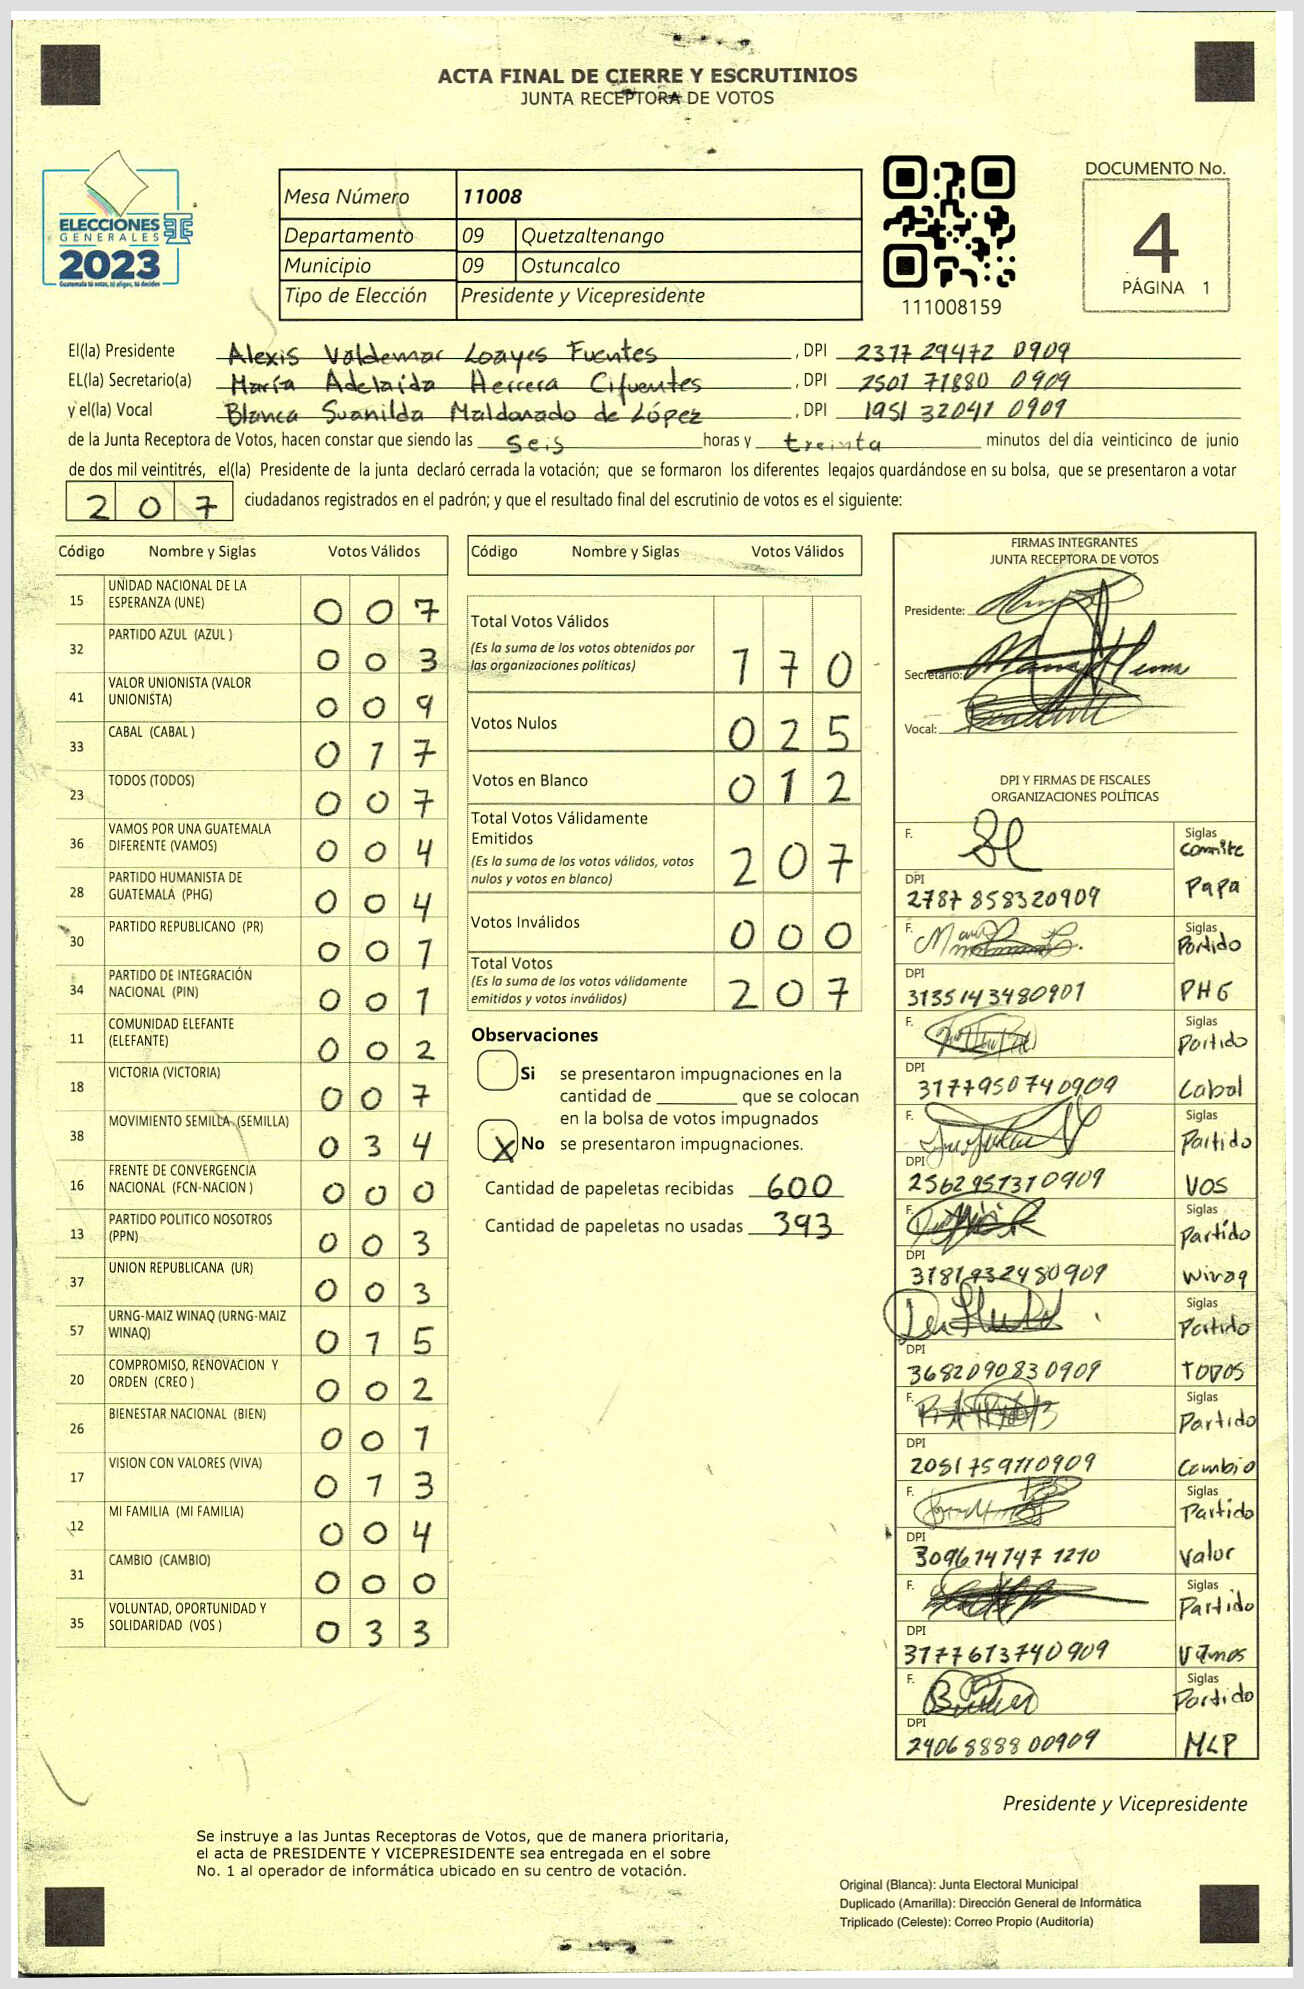 ACTA FINAL DE CIERRE Y ESCRUTINIOS
JUNTA RECEPTORA DE VOTOS
ELECCIONES
GENERALES
2023
Guatemala tú votas, tú eliges, tú decides
Mesa Número 11008
Departamento 09 Quetzaltenango
Municipio 09 Ostuncalco
Tipo de Elección Presidente y Vicepresidente
111008159
DOCUMENTO No.
4
PÁGINA 1
El(la) Presidente Alexis Valdemar Loayes Fuentes, DPI 2317 29472 0909
EL(la) Secretario(a) María Adelaida Herrera Cifuentes, DPI 2501 71880 0909
y el(la) Vocal Blanca Suanilda Maldonado de López, DPI 1951 32041 0909
de la Junta Receptora de Votos, hacen constar que siendo las seis horas y treinta minutos del día veinticinco de junio
de dos mil veintitrés, el(la) Presidente de la junta declaró cerrada la votación; que se formaron los diferentes legajos quardándose en su bolsa, que se presentaron a votar
207 ciudadanos registrados en el padrón; y que el resultado final del escrutinio de votos es el siguiente:
Código Nombre y Siglas Votos Válidos
15 UNIDAD NACIONAL DE LA ESPERANZA (UNE) 007
32 PARTIDO AZUL (AZUL ) 003
41 VALOR UNIONISTA (VALOR UNIONISTA) 009
33 CABAL (CABAL ) 017
23 TODOS (TODOS) 007
36 VAMOS POR UNA GUATEMALA DIFERENTE (VAMOS) 004
28 PARTIDO HUMANISTA DE GUATEMALA (PHG) 004
30 PARTIDO REPUBLICANO (PR) 001
34 PARTIDO DE INTEGRACIÓN NACIONAL (PIN) 001
11 COMUNIDAD ELEFANTE (ELEFANTE) 002
18 VICTORIA (VICTORIA) 007
38 MOVIMIENTO SEMILLA (SEMILLA) 034
16 FRENTE DE CONVERGENCIA NACIONAL (FCN-NACION ) 000
13 PARTIDO POLITICO NOSOTROS (PPN) 003
37 UNION REPUBLICANA (UR) 003
57 URNG-MAIZ WINAQ (URNG-MAIZ WINAQ) 015
20 COMPROMISO, RENOVACION Y ORDEN (CREO ) 002
26 BIENESTAR NACIONAL (BIEN) 001
17 VISION CON VALORES (VIVA) 013
12 MI FAMILIA (MI FAMILIA) 004
31 CAMBIO (CAMBIO) 000
35 VOLUNTAD, OPORTUNIDAD Y SOLIDARIDAD (VOS ) 033
Código Nombre y Siglas Votos Válidos
Total Votos Válidos
(Es la suma de los votos obtenidos por las organizaciones políticas) 170
Votos Nulos 025
Votos en Blanco 012
Total Votos Válidamente Emitidos
(Es la suma de los votos válidos, votos nulos y votos en blanco) 207
Votos Inválidos 000
Total Votos
(Es la suma de los votos válidamente emitidos y votos inválidos) 207
Observaciones
Si se presentaron impugnaciones en la
cantidad de ________ que se colocan
en la bolsa de votos impugnados
X No se presentaron impugnaciones.
Cantidad de papeletas recibidas 600
Cantidad de papeletas no usadas 393
FIRMAS INTEGRANTES
JUNTA RECEPTORA DE VOTOS
Presidente:
Secretario:
Vocal:
DPI Y FIRMAS DE FISCALES
ORGANIZACIONES POLÍTICAS
F. Siglas Commite
DPI 2787 858320909 Papa
F. Siglas Partido
DPI 3135143480901 PHG
F. Siglas Partido
DPI 3177950740909 Cabal
F. Siglas Partido
DPI 2562951310909 VOS
F. Siglas Partido
DPI 3181932480909 Winaq
F. Siglas Partido
DPI 3682090830909 TODOS
F. Siglas Partido
DPI 2051759110909 Cambio
F. Siglas Partido
DPI 309614747 1210 Valor
F. Siglas Partido
DPI 3177613740909 Vamos
F. Siglas Partido
DPI 2406888800909 MLP
Presidente y Vicepresidente
Se instruye a las Juntas Receptoras de Votos, que de manera prioritaria,
el acta de PRESIDENTE Y VICEPRESIDENTE sea entregada en el sobre
No. 1 al operador de informática ubicado en su centro de votación.
Original (Blanca): Junta Electoral Municipal
Duplicado (Amarilla): Dirección General de Informática
Triplicado (Celeste): Correo Propio (Auditoría)